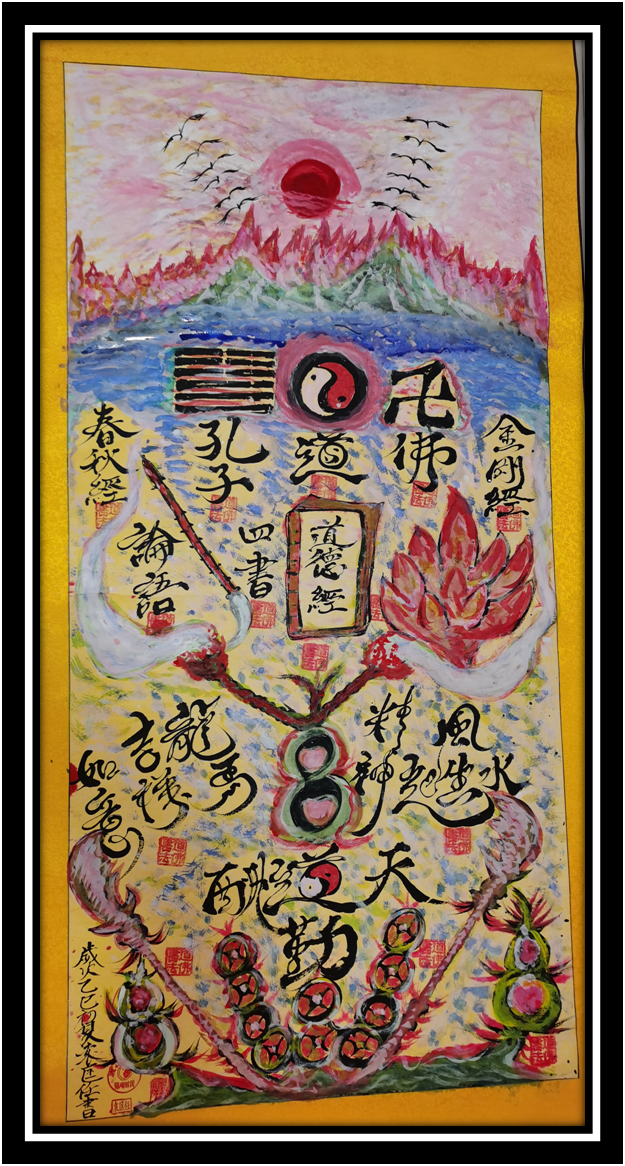 春秋經
孔子
道
卍
佛
金剛經
論語
四書
道德經
龍馬
精神
風生水起
吉祥
如意
天道酬勤
歲次乙巳初夏